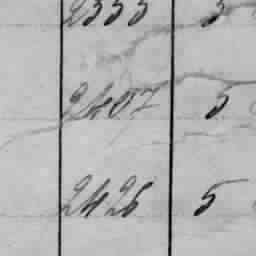 2333 5
2407 5
2426 5